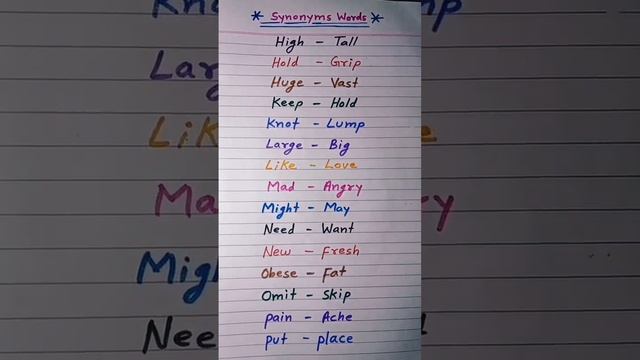 * Synonyms Words *
High - Tall
Hold - Grip
Huge - Vast
Keep - Hold
Knot - Lump
Large - Big
Like - Love
Mad - Angry
Might - May
Need - Want
New - Fresh
Obese - Fat
Omit - Skip
pain - Ache
put - place